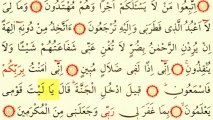 اتَّبِعُوا مَن لَّا يَسْـَٔلُكُمْ أَجْرًا وَهُم مُّهْتَدُونَ ۝ وَمَا لِىَ
لَآ أَعْبُدُ ٱلَّذِى فَطَرَنِى وَإِلَيْهِ تُرْجَعُونَ ۝ ءَأَتَّخِذُ مِن دُونِهِۦٓ ءَالِهَةً
إِن يُرِدْنِ ٱلرَّحْمَٰنُ بِضُرٍّ لَّا تُغْنِ عَنِّى شَفَٰعَتُهُمْ شَيْـًٔا وَلَا
يُنقِذُونِ ۝ إِنِّىٓ إِذًا لَّفِى ضَلَٰلٍ مُّبِينٍ ۝ إِنِّىٓ ءَامَنتُ بِرَبِّكُمْ
فَٱسْمَعُونِ ۝ قِيلَ ٱدْخُلِ ٱلْجَنَّةَ قَالَ يَٰلَيْتَ قَوْمِى
يَعْلَمُونَ ۝ بِمَا غَفَرَ لِى رَبِّى وَجَعَلَنِى مِنَ ٱلْمُكْرَمِينَ ۝